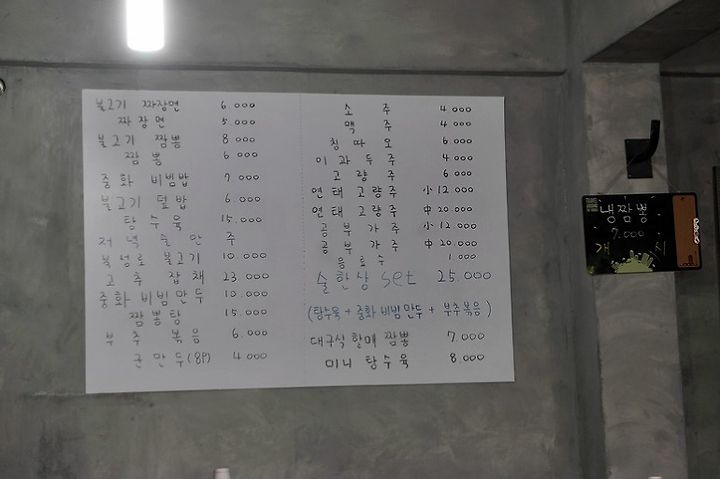 불고기 짜장면 6.000
짜장면 5.000
불고기 짬뽕 8.000
짬뽕 6.000
중화 비빔밥 7.000
불고기 덮밥 6.000
탕수육 15.000
저녁 술안주
북성로 불고기 10.000
고추잡채 23.000
중화 비빔만두 10.000
짬뽕탕 15.000
부추볶음 6.000
군만두(8P) 4.000
소주 4.000
맥주 4.000
칭따오 6.000
이과두주 4.000
고량주 6.000
연태고량주 小 12.000
연태고량주 中 20.000
공부가주 小 12.000
공부가주 中 20.000
음료수 1.000
술한상 set 25.000
(탕수육 + 중화 비빔만두 + 부추볶음)
대구식 한매 짬뽕 7.000
미니 탕수육 8.000
냉짬뽕
7.000
개시